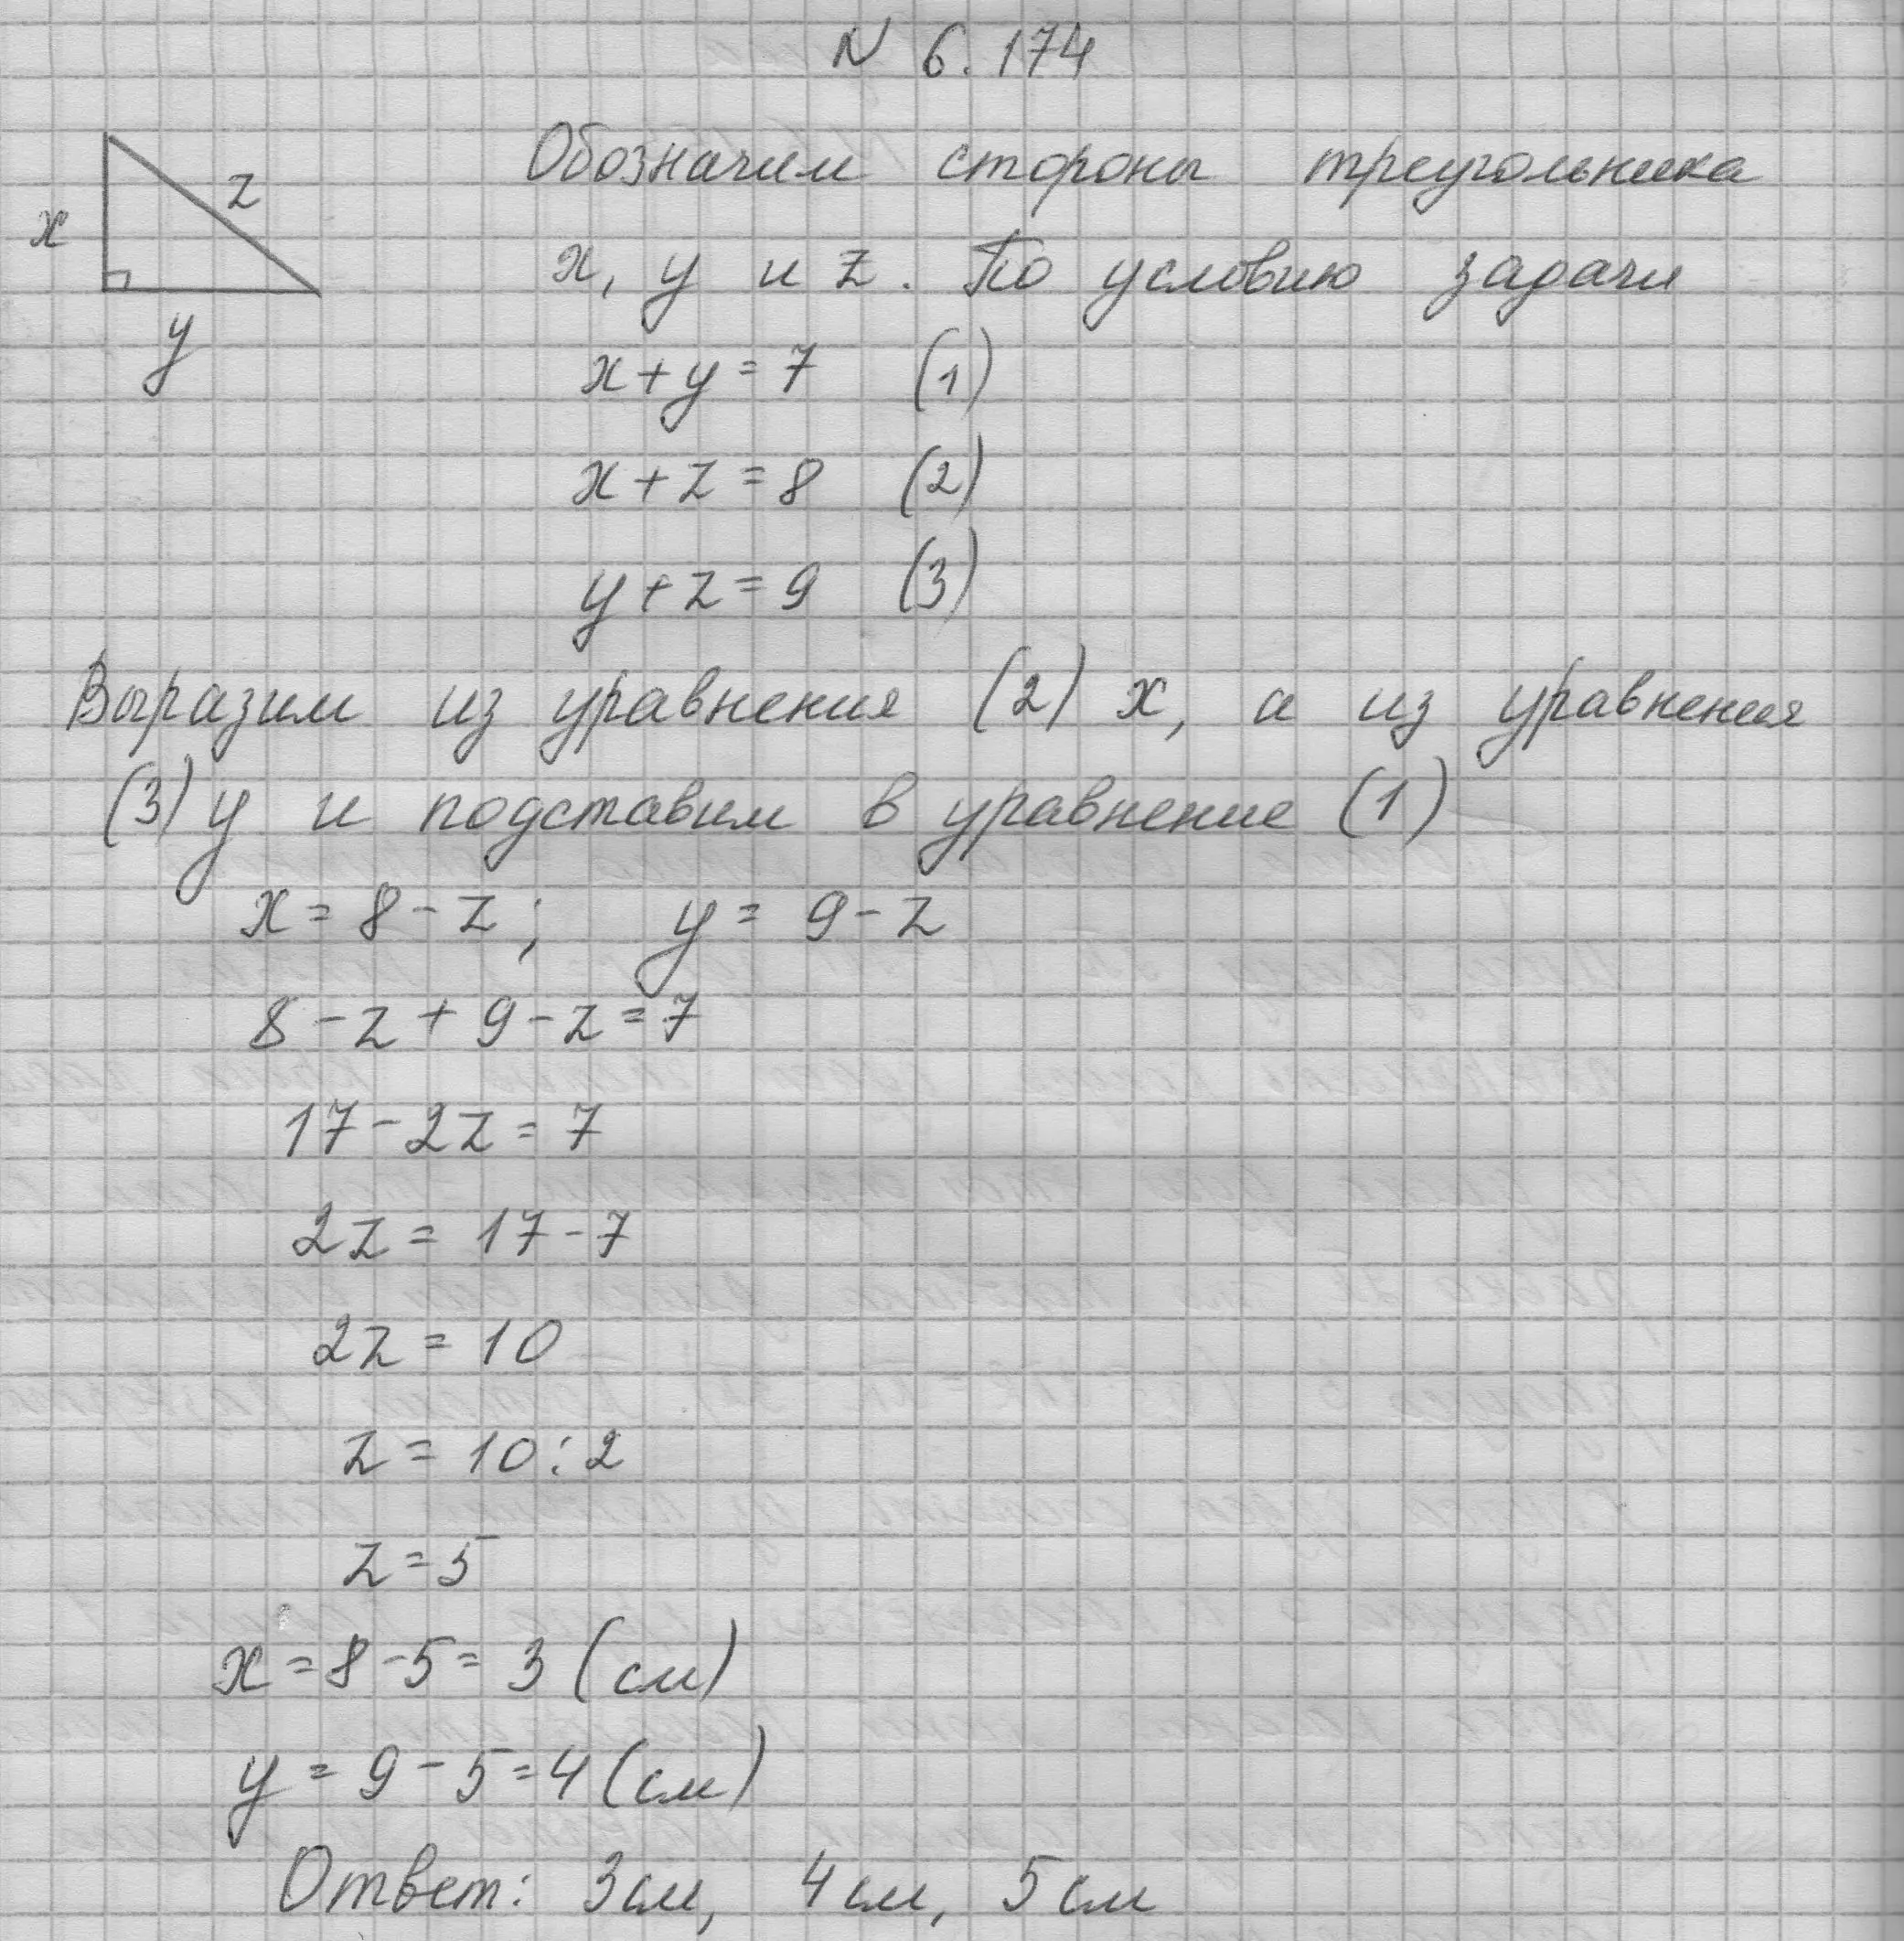 N 6.174
Обозначим стороны треугольника
z
x
x, y и z. По условию задачи
y
x+y=7 (1)
x+z=8 (2)
y+z=9 (3)
Выразим из уравнения (2) x, а из уравнения
(3) y и подставим в уравнение (1)
x=8-z; y=9-z
8-z+9-z=7
17-2z=7
2z=17-7
2z=10
z=10:2
z=5
x=8-5=3 (см)
y=9-5=4 (см)
Ответ: 3см, 4см, 5см